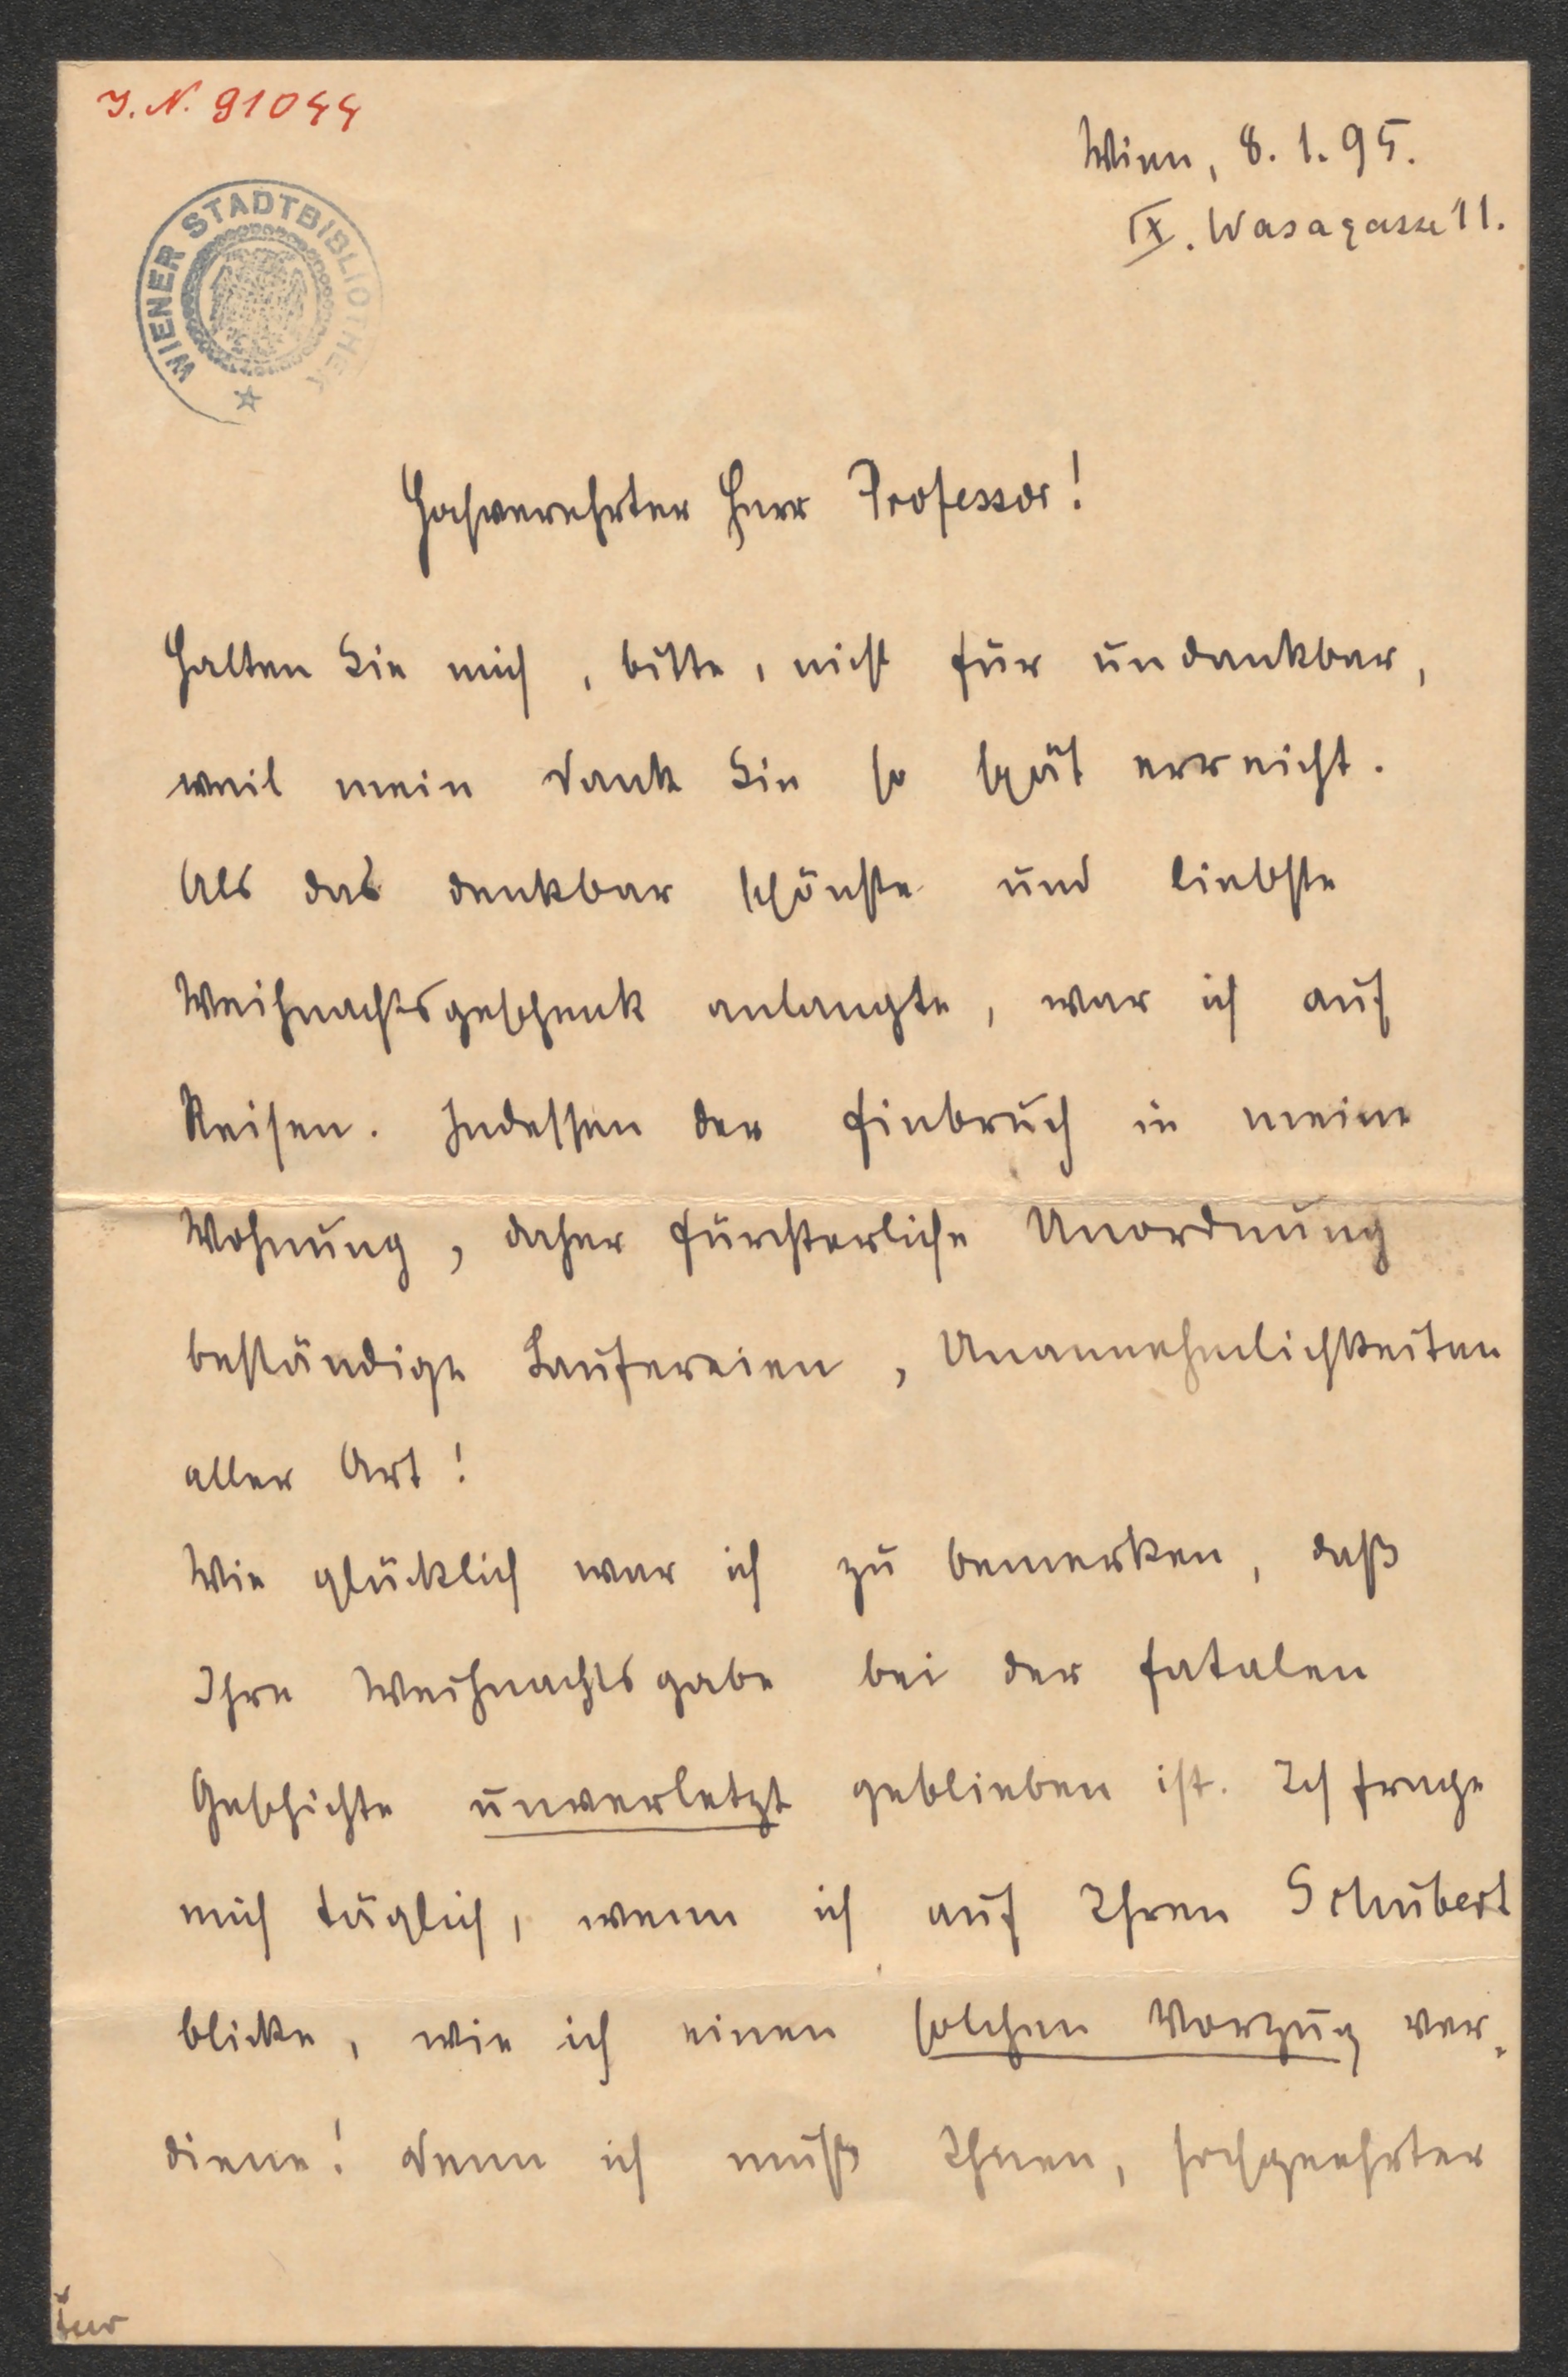 J. N. 91044
Wien, 8. 1. 95.
IX. Wasagasse 11.
WIENER STADTBIBLIOTHEK
Hochverehrter Herr Professor!
Halten Sie mich, bitte, nicht für undankbar,
weil mein Dank Sie so spät erreicht.
Als das denkbar schönste und liebste
Weihnachtsgeschenk anlangte, war ich auf
Reisen. Indessen der Einbruch in meine
Wohnung, daher fürchterliche Unordnung
beständige Laufereien, Unannehmlichkeiten
aller Art!
Wie glücklich war ich zu bemerken, daß
Ihre Weihnachtsgabe bei der fatalen
Geschichte unverletzt geblieben ist. Ich frage
mich täglich, wenn ich auf Ihren Schubert
blicke, wie ich einen solchen Vorzug ver-
diene! Denn ich muß Ihnen, hochgeehrter